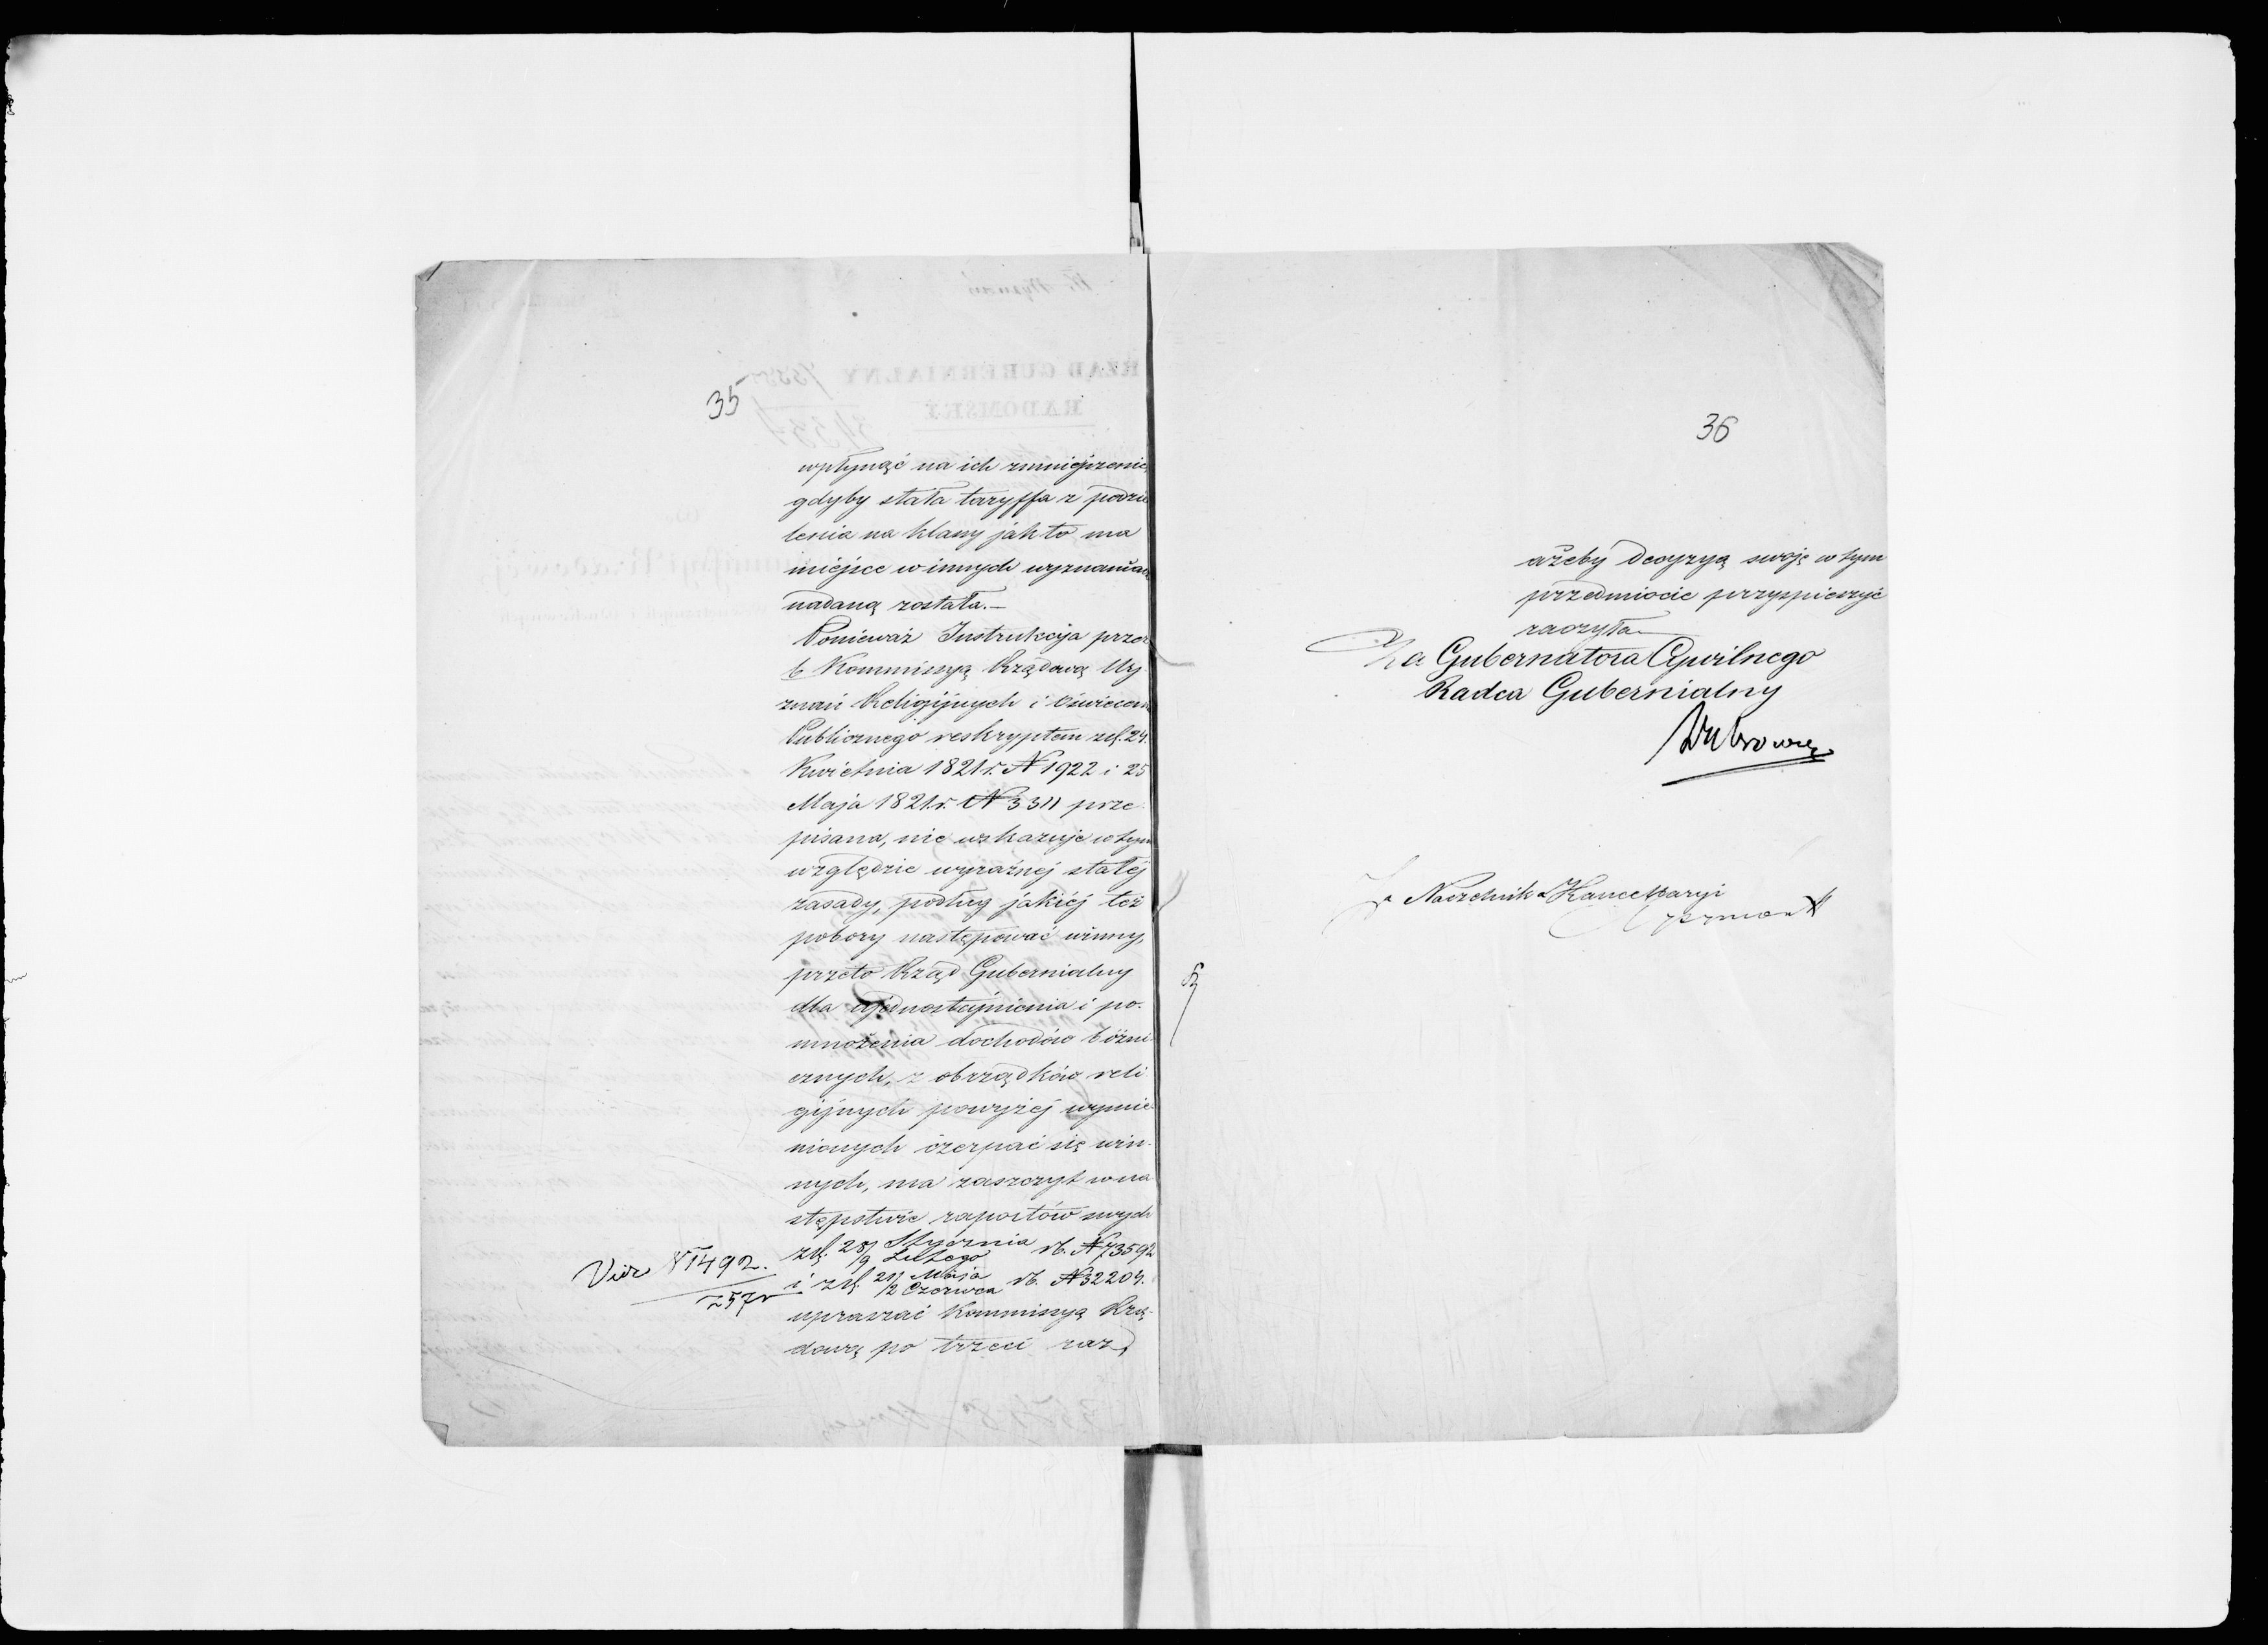 35
wpłynąć na ich zmniejszenie,
gdyby stała taryffa z podzie
lenia na klassy jak to ma
miejsce w innych wyznaniach
nadaną została.—
Ponieważ Instrukcyja przez
b. Kommissyą Rządową Wy-
znań Religijnych i Oświecenia
Publicznego reskryptem z d. 24.
Kwietnia 1821 r. N 1922 i 25
Maja 1821. r. N 3311 prze-
pisana, nie wskazuje w tym
względzie wyraźnej stałej
zasady, podług jakiéj też
pobory następować winny,
przeto Rząd Gubernialny
dla ujednostajnienia i po-
mnożenia dochodów bożni-
cznych, z obrządków reli
gijnych powyżej wymie-
nionych czerpać się win-
nych, ma zaszczyt w na
stępstwie raportów swych
z d. 28/9 Stycznia/Lutego rb. N 73592
i z d. 21/2 Maja/Czerwca rb. N 32204.
Vide N 1492.
257
upraszać Kommissyą Rzą-
dową po trzeci raz,
36
ażeby decyzyą swoję w tym
przedmiocie przyspieszyć
raczyła
Za Gubernatora Cywilnego
Radca Gubernialny
Za Naczelnika Kancellaryi